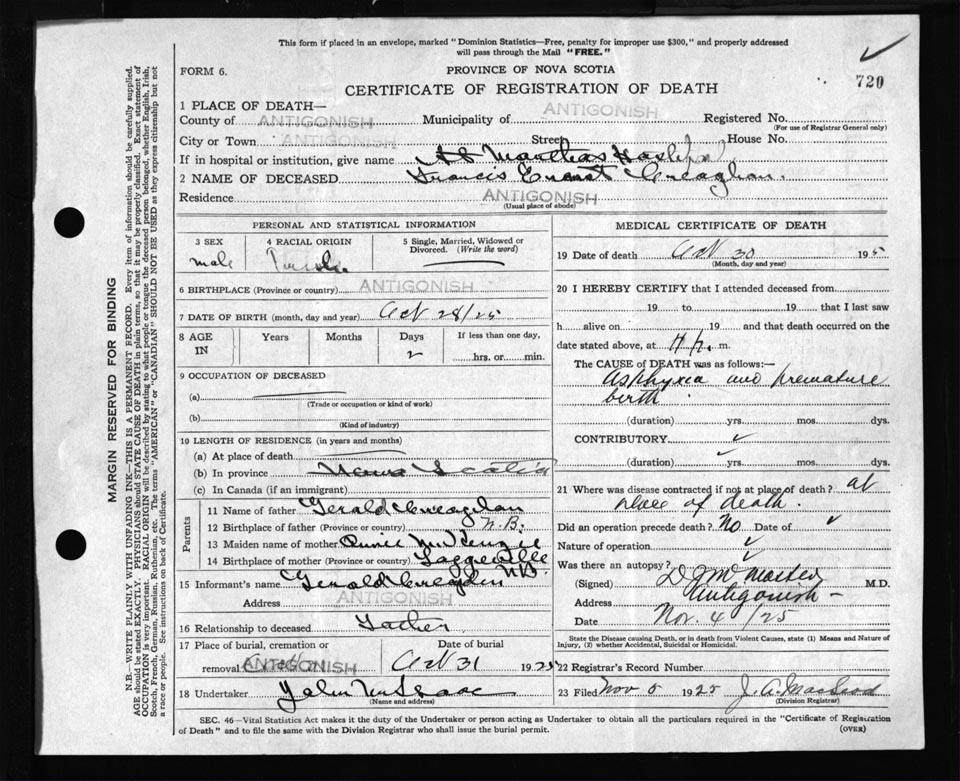 This form if placed in an envelope, marked "Dominion Statistics—Free, penalty for improper use $300," and properly addressed
will pass through the Mail "FREE."
FORM 6.
PROVINCE OF NOVA SCOTIA
720
CERTIFICATE OF REGISTRATION OF DEATH
1 PLACE OF DEATH—
County of ANTIGONISH Municipality of ANTIGONISH Registered No.
(For use of Registrar General only)
City or Town ANTIGONISH Street House No.
If in hospital or institution, give name St Marthas Hospital
2 NAME OF DECEASED Francis Ernest Creaghan.
Residence ANTIGONISH
(Usual place of abode)
PERSONAL AND STATISTICAL INFORMATION
3 SEX
male
4 RACIAL ORIGIN
5 Single, Married, Widowed or
Divorced. (Write the word)
6 BIRTHPLACE (Province or country) ANTIGONISH
7 DATE OF BIRTH (month, day and year) Oct 28/25
8 AGE
IN
Years
Months
Days
2
If less than one day,
hrs. or min.
9 OCCUPATION OF DECEASED
(a)
(Trade or occupation or kind of work)
(b)
(Kind of industry)
10 LENGTH OF RESIDENCE (in years and months)
(a) At place of death
(b) In province Nova Scotia
(c) In Canada (if an immigrant)
Parents
11 Name of father Gerald Creaghan
12 Birthplace of father (Province or country) N.B.
13 Maiden name of mother McKenzie
14 Birthplace of mother (Province or country) Loggieville
N.B.
15 Informant's name Gerald Creaghan
Address ANTIGONISH
16 Relationship to deceased Father
17 Place of burial, cremation or
removal ANTIGONISH
Date of burial
Oct 31 1925
18 Undertaker John McIsaac
(Name and address)
MEDICAL CERTIFICATE OF DEATH
19 Date of death Oct 30 195
(Month, day and year)
20 I HEREBY CERTIFY that I attended deceased from
19 to 19 that I last saw
h alive on 19 and that death occurred on the
date stated above, at m.
The CAUSE OF DEATH was as follows:—
Asphyxia and premature
birth
(duration) yrs. mos. dys.
CONTRIBUTORY
(duration) yrs. mos. dys.
21 Where was disease contracted if not at place of death? at
place of death.
Did an operation precede death? No Date of
Nature of operation
Was there an autopsy?
(Signed) M.D.
Address Antigonish
Date Nov. 4/25
State the Disease causing Death, or in death from Violent Causes, state (1) Means and Nature of
Injury, (2) whether Accidental, Suicidal or Homicidal.
22 Registrar's Record Number
23 Filed Nov 5 1925 J. A. MacLeod
(Division Registrar)
SEC. 46—Vital Statistics Act makes it the duty of the Undertaker or person acting as Undertaker to obtain all the particulars required in the "Certificate of Registration
of Death" and to file the same with the Division Registrar who shall issue the burial permit.
(OVER)
MARGIN RESERVED FOR BINDING
N.B.—WRITE PLAINLY WITH UNFADING INK—THIS IS A PERMANENT RECORD. Every item of information should be carefully supplied.
AGE should be stated EXACTLY. PHYSICIANS should STATE CAUSE OF DEATH in plain terms, so that it may be properly classified. Exact statement of
OCCUPATION is very important. RACIAL ORIGIN will be described by stating to what people or tongue the deceased person belonged, whether English, Irish,
Scotch, French, German, Russian, Ruthenian, etc. The terms "AMERICAN" or "CANADIAN" SHOULD NOT BE USED as they express citizenship but not
a race or people. See instructions on back of Certificate.